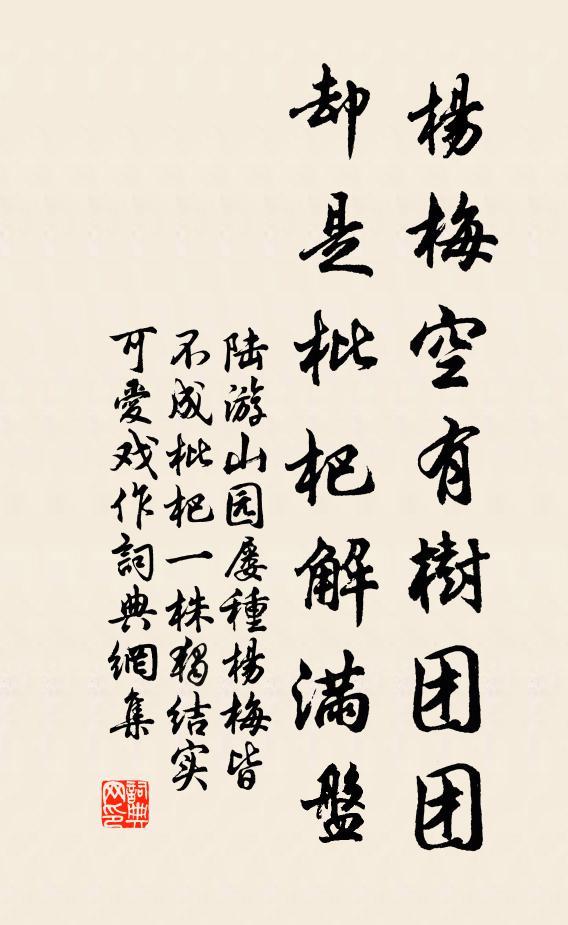 楊梅空有樹团团
却是枇杷解満盤
陆游山园屡種楊梅皆
不成枇杷一株獨结实
可愛戏作詞典網集
詞典
网印